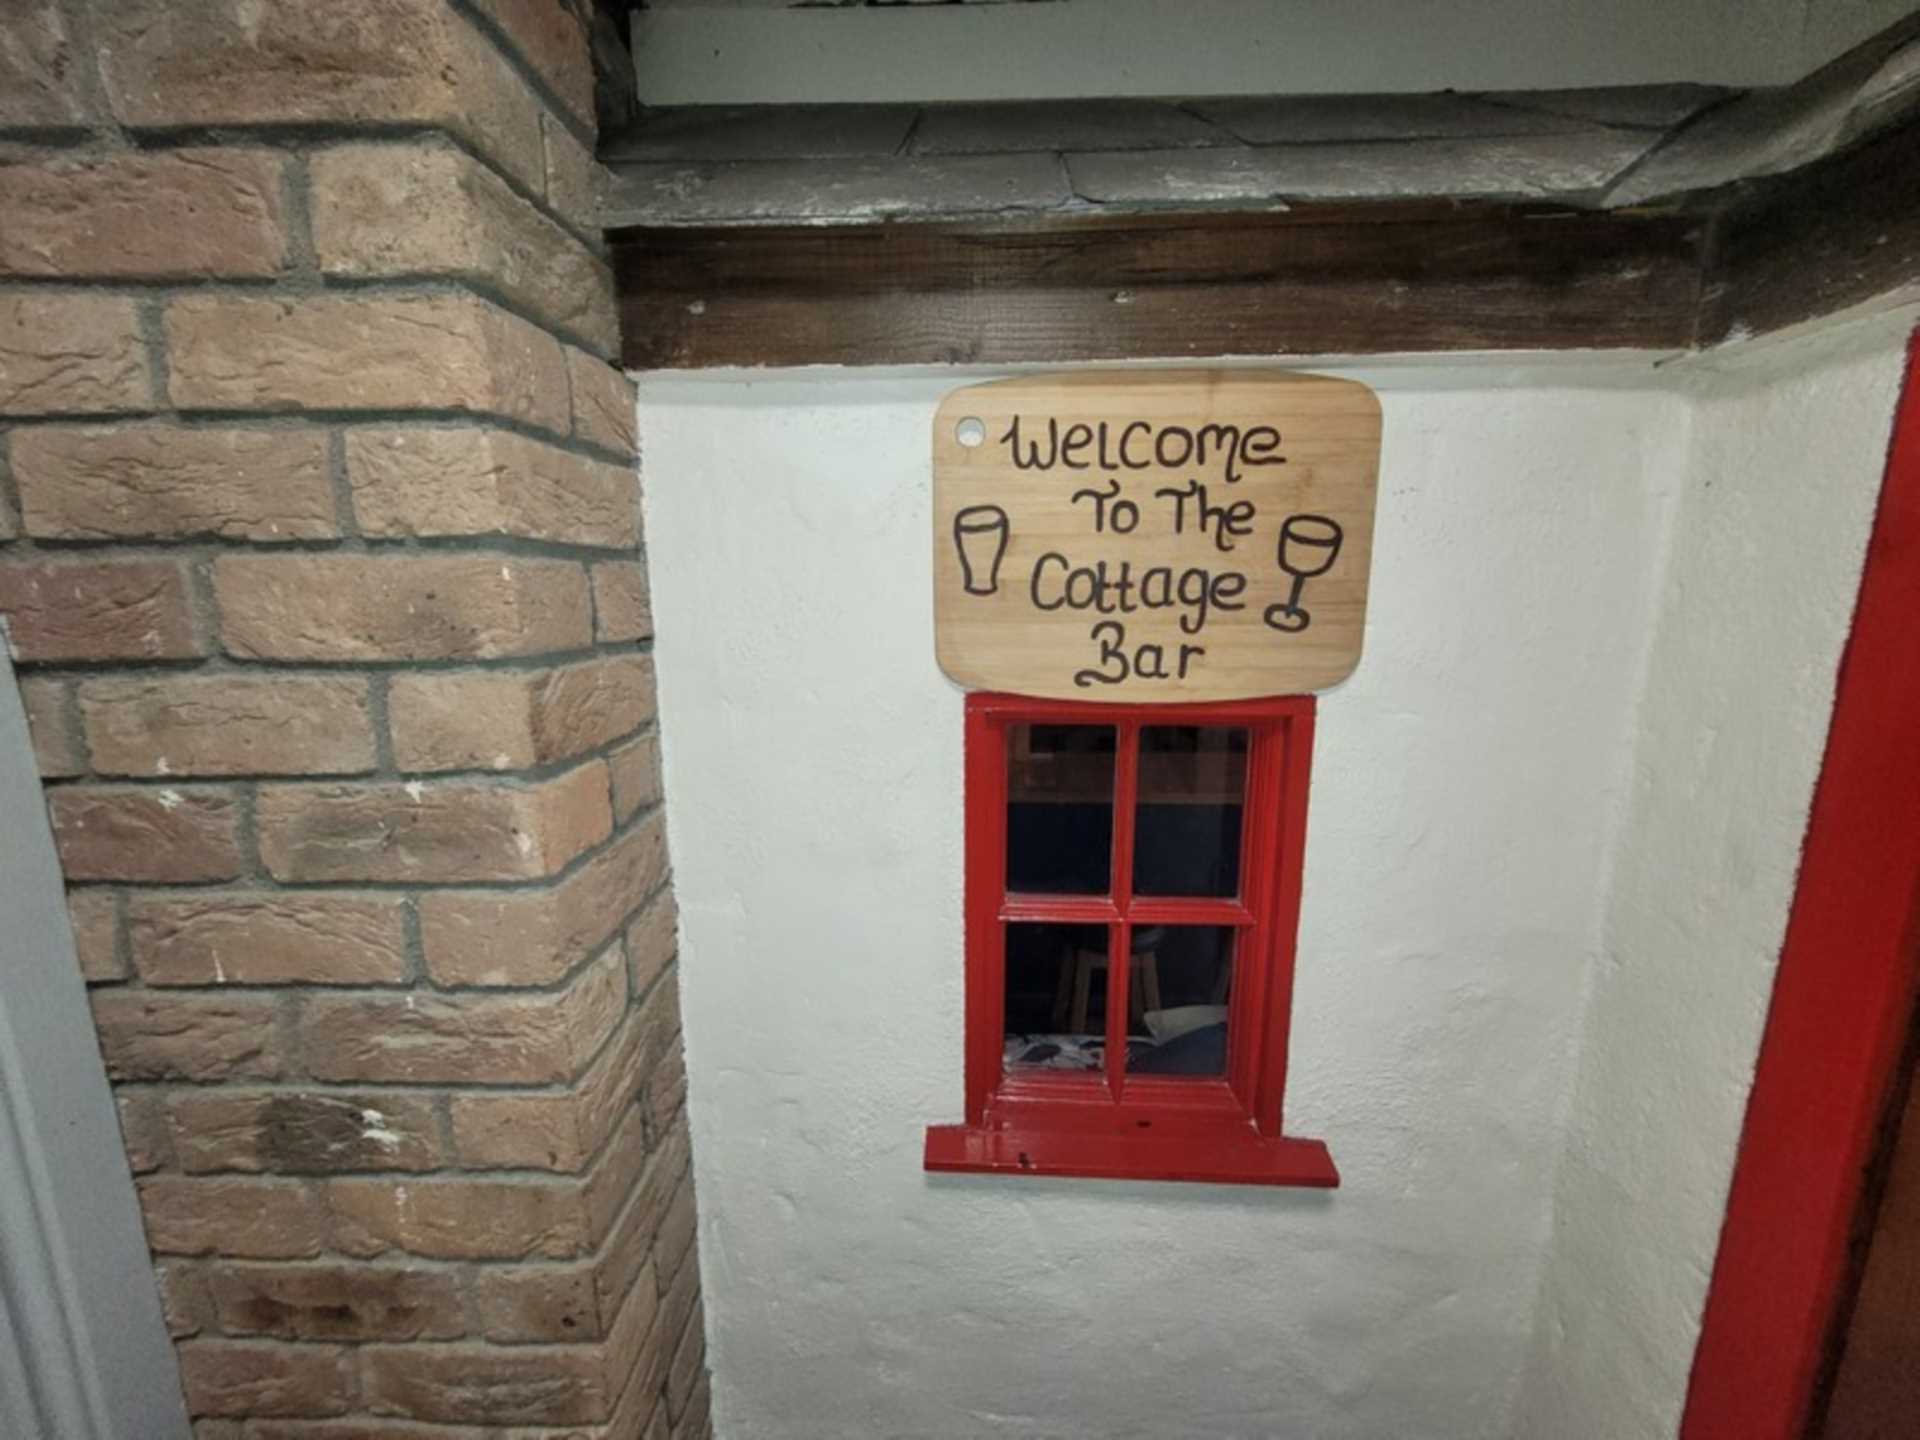 Welcome
To The
Cottage
Bar